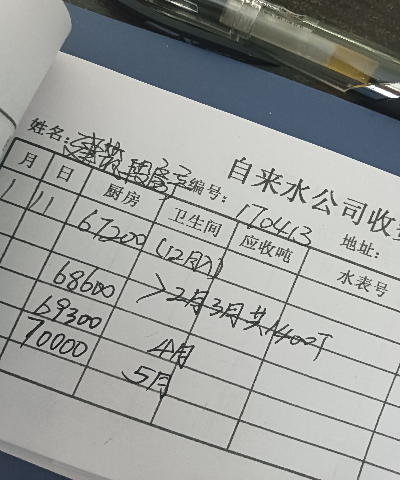 自来水公司收
姓名: 建设段房 编号: 170413 地址:
月 日 厨房 卫生间 应收吨 水表号
1 11 67200 (12月)
68600 >2月3月共1400T
69300 4月
70000 5月